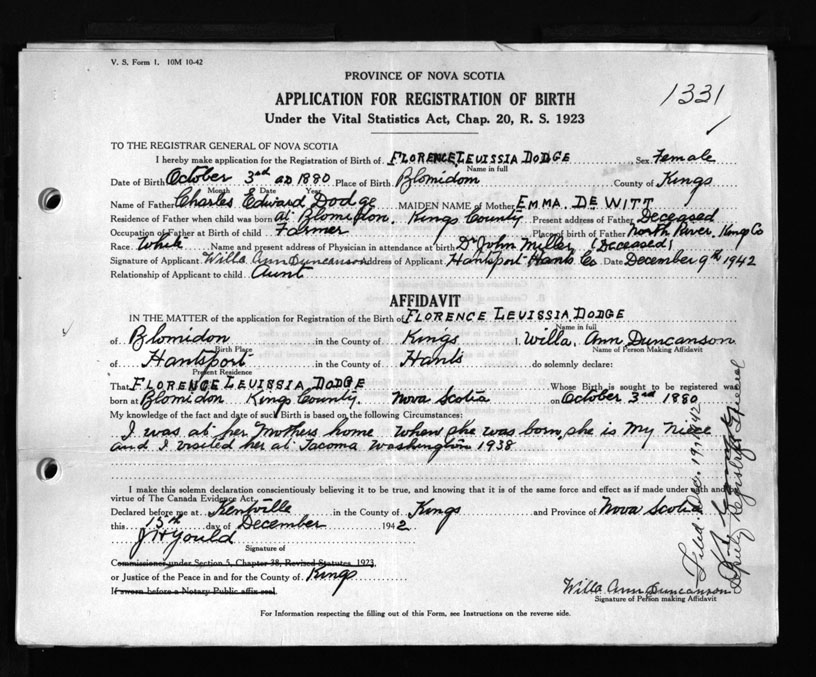 V. S. Form 1. 10M 10-42
PROVINCE OF NOVA SCOTIA
1331
APPLICATION FOR REGISTRATION OF BIRTH
Under the Vital Statistics Act, Chap. 20, R. S. 1923
TO THE REGISTRAR GENERAL OF NOVA SCOTIA
I hereby make application for the Registration of Birth of FLORENCE LEUISSIA DODGE Sex Female
Name in full
Date of Birth October 3rd AD 1880 Place of Birth Blomidon County of Kings
Month Date Year
Name of Father Charles Edward Dodge MAIDEN NAME of Mother EMMA. DE WITT
Residence of Father when child was born at Blomidon. Kings County Present address of Father Deceased
Occupation of Father at Birth of child Farmer Place of birth of Father North River, Kings Co
Race White Name and present address of Physician in attendance at birth Dr John Miller (Deceased)
Signature of Applicant Willa Ann Duncanson Address of Applicant Hantsport Hants Co. Date December 9th 1942
Relationship of Applicant to child Aunt
AFFIDAVIT
IN THE MATTER of the application for Registration of the Birth of FLORENCE LEUISSIA DODGE
Name in full
of Blomidon in the County of Kings I, Willa Ann Duncanson
Birth Place Name of Person Making Affidavit
of Hantsport in the County of Hants do solemnly declare:
Present Residence
That FLORENCE LEUISSIA DODGE Whose Birth is sought to be registered was
born at Blomidon Kings County. Nova Scotia on October 3rd 1880
My knowledge of the fact and date of such Birth is based on the following Circumstances:
I was at her Mothers home when she was born, she is My niece
and I visited her at Tacoma Washington 1938
I make this solemn declaration conscientiously believing it to be true, and knowing that it is of the same force and effect as if made under oath and
virtue of The Canada Evidence Act.
Declared before me at Kentville in the County of Kings and Province of Nova Scotia
this 15th day of December 1942
J H Yould
Signature of
Commissioner under Section 5, Chapter 38, Revised Statutes, 1923,
or Justice of the Peace in and for the County of Kings
If sworn before a Notary Public affix seal.
Willa Ann Duncanson
Signature of Person making Affidavit
For Information respecting the filling out of this Form, see Instructions on the reverse side.
Filed Dec. 19, 1942
Deputy Registrar General